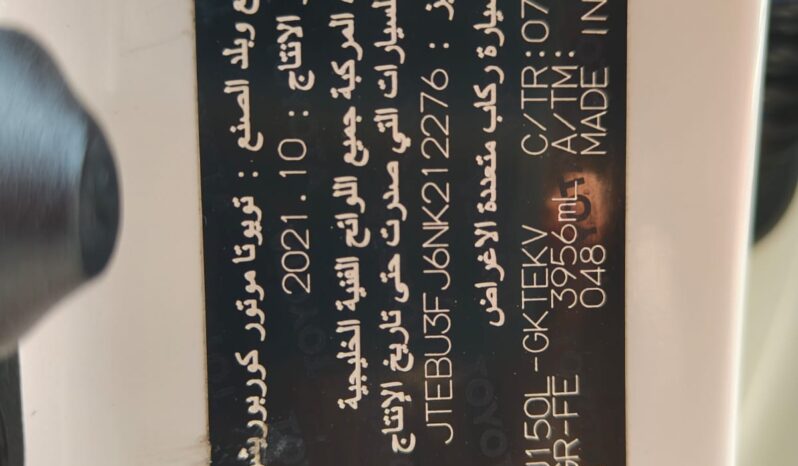 وبلد الصنع : تويوتا موتور كوربوريش
الانتاج : 2021.10
المركبة جميع اللوائح الفنية الخليجية
لسيارات التي صدرت حتى تاريخ الإنتاج
: JTEBU3FJ6NK212276
سيارة ركاب متعددة الاغراض
J150L-GKTEKV C/TR:07
GR-FE 3956mL A/TM:
048 MADE IN